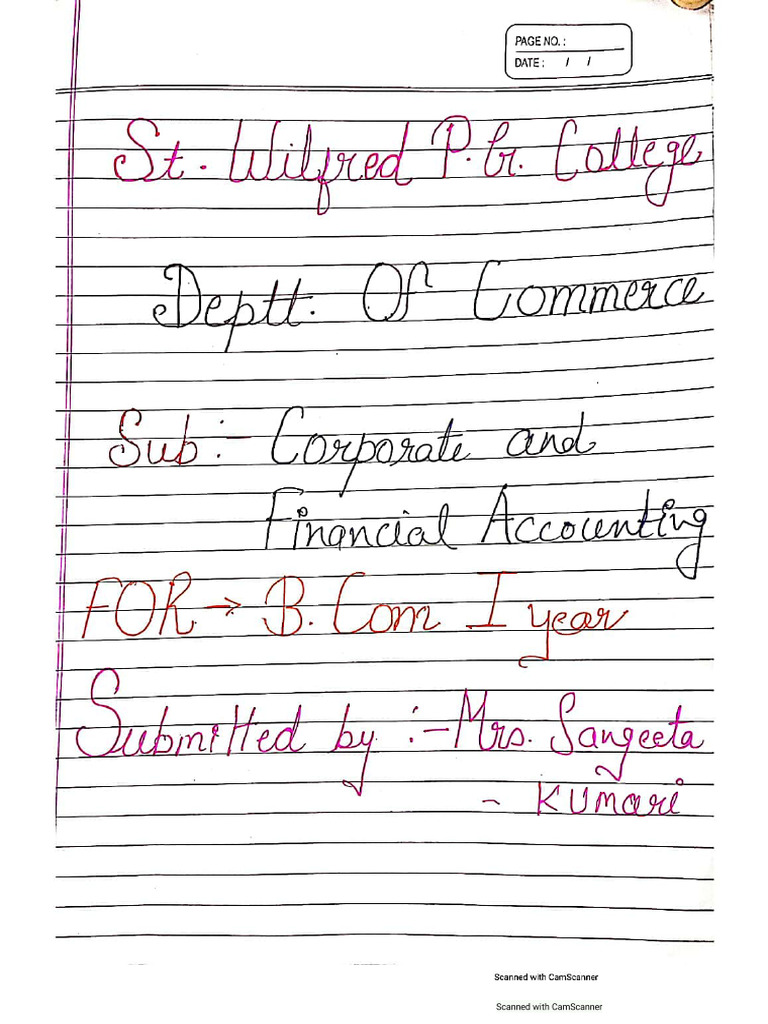 PAGE NO. :
DATE : / /
St. Wilfred P.G. College
Deptt. Of Commerce
Sub :- Corporate and
Financial Accounting
FOR → B. Com I year
Submitted by :- Mrs. Sangeeta
- Kumari
Scanned with CamScanner
Scanned with CamScanner